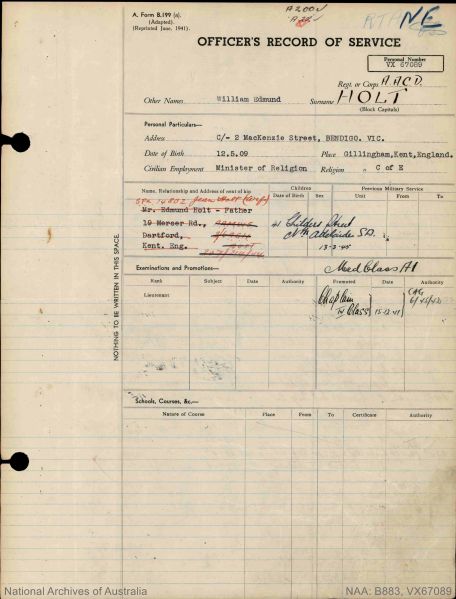 A. Form B.199 (a).
(Adapted).
(Reprinted June, 1941).
A200
NE
OFFICER'S RECORD OF SERVICE
Personal Number
VX 67089
Regt. or Corps A.A.C.D.
Other Names William Edmund Surname HOLT
(Block Capitals)
Personal Particulars—
Address C/- 2 MacKenzie Street, BENDIGO. VIC.
Date of Birth 12.5.09 Place Gillingham, Kent, England.
Civilian Employment Minister of Religion Religion C of E
Name, Relationship and Address of next of kin
Children
Date of Birth Sex
Previous Military Service
Unit From To
Mr. Edmund Holt - Father
19 Merser Rd.,
Dartford,
Kent. Eng.
41 Childers Street
Nth Adelaide S.A.
13-2-45
Examinations and Promotions—
Med Class A1
Rank Subject Date Authority Promoted Date Authority
Lieutenant
Chaplain
IV Class 15-12-41
CAG
6/45/42
Schools, Courses, &c.—
Nature of Course Place From To Certificate Authority
NOTHING TO BE WRITTEN IN THIS SPACE.
National Archives of Australia
NAA: B883, VX67089